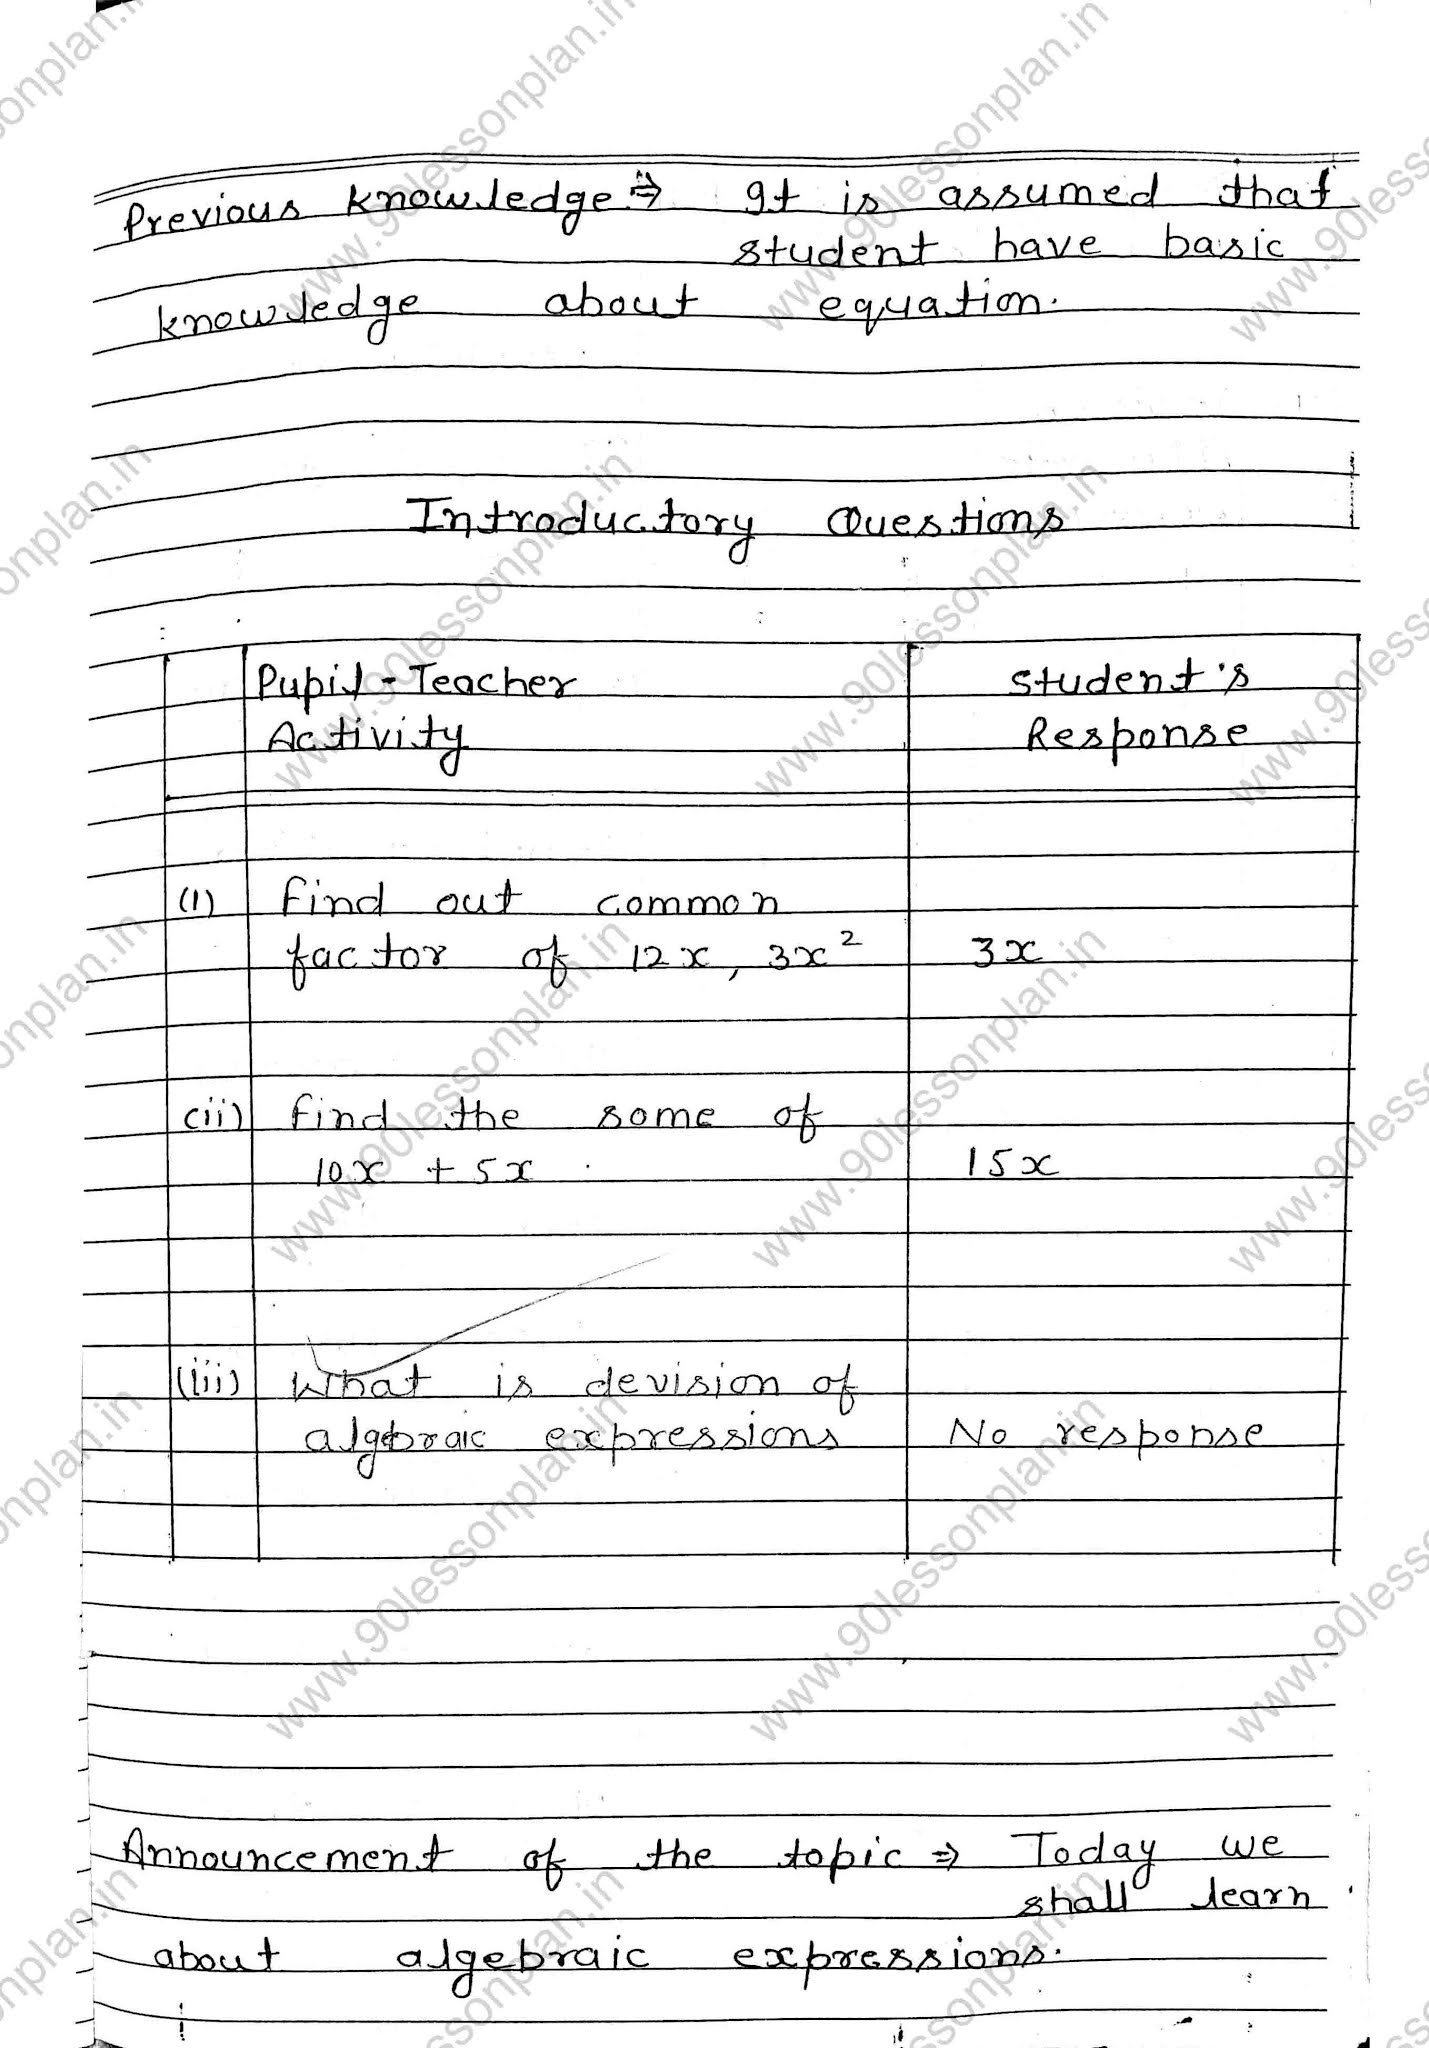 Previous knowledge ⇒ It is assumed that
student have basic
knowledge about equation.
Introductory Questions
Pupil-Teacher Activity
Student's Response
(i) find out common
factor of 12x, 3x² 3x
(ii) find the some of
10x + 5x 15x
(iii) What is devision of
algebraic expressions No response
Announcement of the topic ⇒ Today we
shall learn
about algebraic expressions.
www.90lessonplan.in